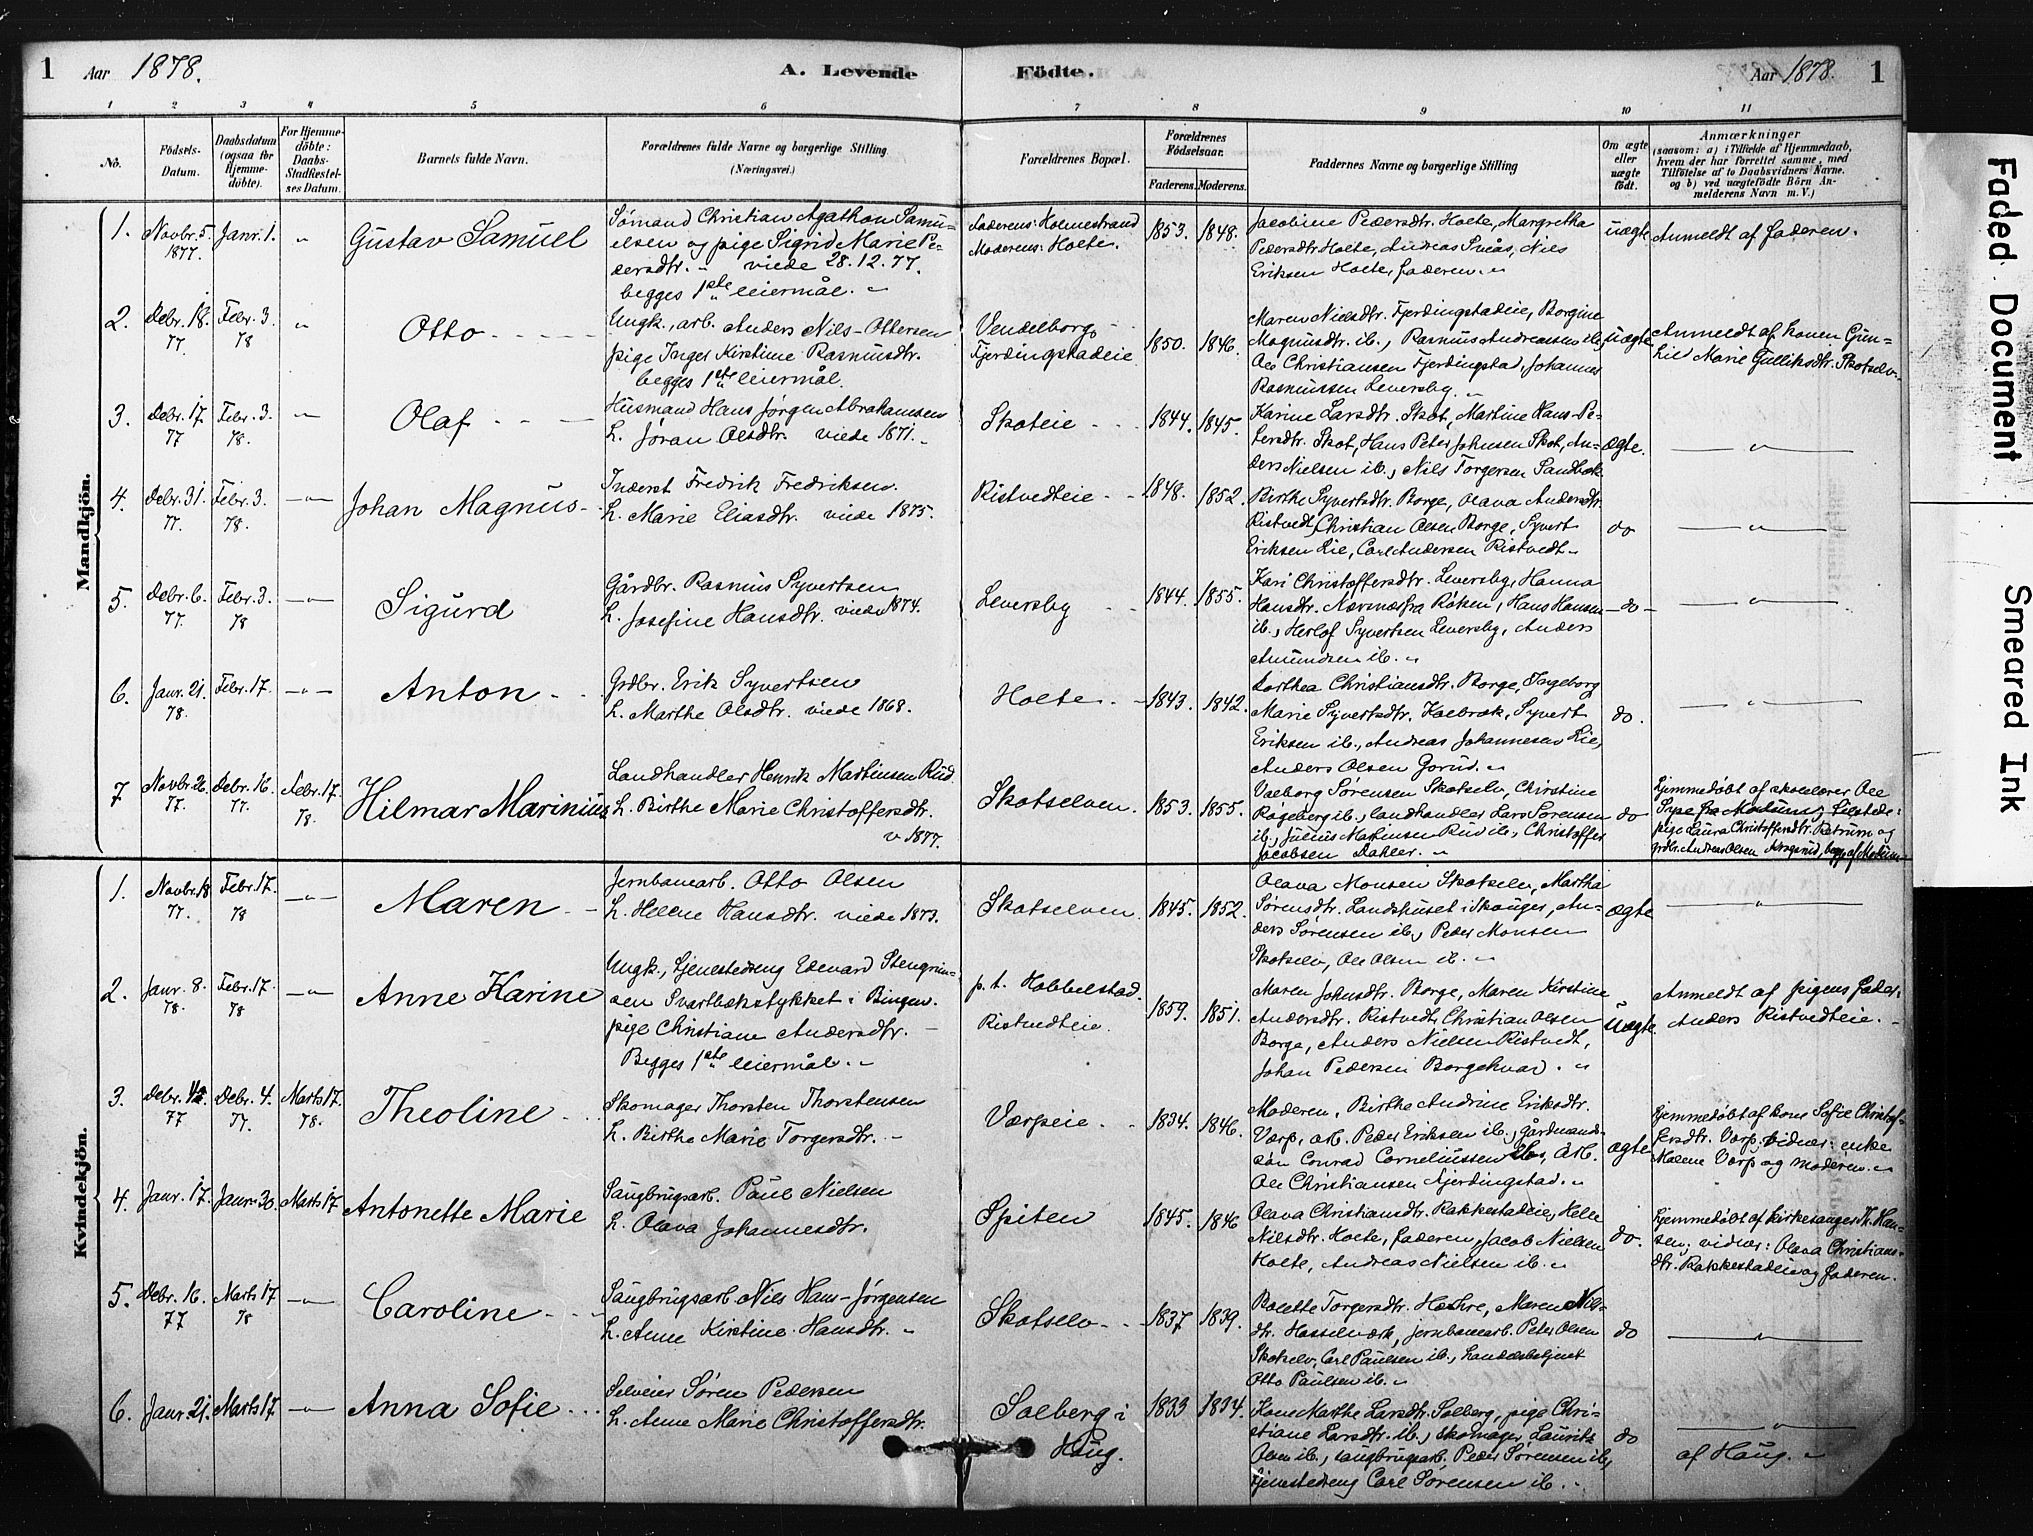 1 Aar 1878. A. Levende Födte. Aar 1878. 1
1 2 3 4 5 6 7 8 9 10 11
No.
Födsels-
Datum.
Daabsdatum
(ogsaa for
Hjemme-
döbte).
For Hjemme-
döbte:
Daabs-
Stadfæstel-
ses Datum.
Barnets fulde Navn.
Forældrenes fulde Navne og borgerlige Stilling
(Næringsvei.)
Forældrenes Bopæl.
Forældrenes
Födselsaar.
Faderens. Moderens.
Faddernes Navne og borgerlige Stilling
Om ægte
eller
uægte
födt.
Anmærkninger
(saasom: a) i Tilfælde af Hjemmedaab,
hvem der har forrettet samme, med
Tilföielse af to Daabsvidners Navne.
og b) ved uægtefödte Börn An-
melderens Navn m. V.)
Mandkjön.
1. Novbr. 5. 1877. Janr. 1. " Gustav Samuel
Sømand Christian Agathon Samu-
elsen og pige Sigrid Marie Pe-
dersdtr. - viede 28.12.77.
begges 1ste leiermål.
Faderens: Holmestrand
Moderens: Holte.
1853. 1848.
Jacobine Pedersdtr. Holte, Margretha
Pedersdtr. Holte, Andreas Sneås, Nils
Eriksen Holte, faderen.
uægte
Anmeldt af faderen.
2. Debr. 18. 77 Febr. 3. 78 " Otto
Ungk., arb. Anders Nils-Ottersen
pige Inger Kirstine Rasmusdtr.
begges 1ste leiermål.
Vendelborg
Fjerdingstadeie
1850. 1846.
Maren Nielsdtr. Fjerdingstadeie, Borgine
Magnusdtr. ib., Rasmus Andreassen ib,
Ole Christiansen Fjerdingstad, Johannes
Rasmussen Leversby.
uægte
Anmeldt af konen Gun-
hil Marie Gulliksdtr. Skotselv.
3. Debr. 17. 77 Febr. 3. 78. " Olaf
Husmand Hans Jørgen Abrahamsen
h. Jøran Olsdtr. viede 1871.
Skoteie
1844. 1845.
Karine Larsdtr. Skot, Martine Hans-Pe-
tersdtr. Skot, Hans Peter Johnsen Skot, An-
ders Nielsen ib., Nils Torgersen Sandbæk
ægte.
4. Debr. 31. 77. Febr. 3. 78. " Johan Magnus
Inderst Fredrik Fredriksen.
h. Marie Eliasdtr. viede 1875.
Ristvedteie
1848. 1852.
Birthe Syvertsdtr. Borge, Olava Andersdtr.
Ristvedt, Christian Olsen Borge, Syvert
Eriksen Lie, Carl Andersen Ristvedt
do
5. Debr. 6. 77. Febr. 3. 78 " Sigurd
Gårdbr. Rasmus Syvertsen
h. Josefine Hansdtr. viede 1874.
Leversby
1844. 1855.
Kari Christoffersdtr. Leversby, Hanna
Hansdtr. Nærsnæs fra Røken, Hans Hansen
ib., Herlof Syvertsen Leversby, Anders
Amundsen ib.
do
6. Janr. 21. 78. Febr. 17. " Anton
Grdbr. Erik Syvertsen
h. Marthe Olsdtr. viede 1868.
Holte
1843. 1842.
Dorthea Christiansdtr. Borge, Ingeborg
Marie Syvertsdtr. Kolbrek, Syvert
Eriksen ib., Andreas Johannesen Lie,
Anders Olsen Gorud.
do.
7 Novbr. 26. 77. Debr. 16. 77. Febr. 17. 78. Hilmar Marinius
Landhandler Henrik Martinsen Rud
h. Birthe Marie Christoffersdtr.
v 1877.
Skotselven.
1853. 1855.
Valborg Sørensen Skotselv, Christine
Røgeberg ib., landhandler Lars Sørensen
ib., Julius Martinsen Rud ib., Christoffer
Jacobsen Dahler.
do
Hjemmedøbt af skolelærer Ole
fra Modum; tilstede:
pige Laura Christoffersdtr. og
grdbr. Andreas Olsen begge af Modum
Kvindekjön.
1. Novbr. 18 77. Febr. 17. 78 " Maren
Jernbanearb. Otto Olsen
h. Helene Hansdtr. viede 1873.
Skotselven.
1845. 1852.
Olava Monsen Skotselv, Martha
Sørensdtr. Landshuset i Skouger, An-
ders Sørensen ib., Peder Monsen
Skotselv, Ole Olsen ib.
ægte
2. Janr. 8. 78. Febr. 17. 78 " Anne Karine
Ungk., tjenestedreng Edevard Stengrim-
sen Svartbækstykket i Bingen.
pige Christiane Andersdtr.
Begges 1ste leiermål.
p. t. Hobbelstad.
Ristvedteie.
1859. 1851.
Maren Johnsdtr. Borge, Maren Kirstine
Andersdtr. Ristvedt, Christian Olsen
Borge, Anders Nielsen Ristvedt,
Johan Pedersen Borgekvar.
uægte.
Anmeldt af pigens fader:
Anders Ristvedteie.
3. Debr. 77 Debr. 4. 77. Marts 17. 78. Theoline
Skomager Thorsten Thorstensen
h. Birthe Marie Torgersdtr.
Værpeie.
1834. 1846.
Moderen, Birthe Andrine Eriksdtr.
Værp, arb. Peder Eriksen ib., gårdmands-
søn Conrad Corneliussen , Arb.
Ole Christiansen Fjerdingstad.
ægte
Hjemmedøbt af kone Sofie Christof-
fersdtr. Værp. vidner: enke
Malene Værp og moderen.
4. Janr. 17. Janr. 30. Marts 17 Antonette Marie
Saugbrugsarb. Paul Nielsen
h. Olava Johannesdtr.
Spiten
1845. 1846
Olava Christiansdtr. Rakkestadeie, Helle
Nilsdtr. Holte, faderen, Jacob Nielsen
Holte, Andreas Nielsen ib.
do.
Hjemmedøbt af kirkesanger Th. Han-
sen; vidner: Olava Christians-
dtr. Rakkestadeie og faderen.
5. Debr. 16. 77 Marts 17 78 " Caroline
Saugbrugsarb. Nils Hans-Jørgensen
h. Anne Kirstine Hansdtr.
Skotselv
1837 1839.
Bolette Torgersdtr. Horne, Maren Nils-
dtr. Hasselværk, jernbanearb. Peter Olsen
Skotselv, Carl Paulsen ib., handelsbetjent
Otto Paulsen ib.
do
6. Janr. 21. Marts 17 " Anna Sofie
Selveier Søren Pedersen
h. Anne Marie Christoffersdtr.
Solberg i
Haug.
1833 1834.
Kone Marthe Larsdtr. Solberg, pige Chri-
stiane Larsdtr. ib., skomager Laurits
Olsen ib., saugbrugsarb. Peder Sørensen ib,
tjenestedreng Carl Sørensen ib.
do
af Haug.
Faded Document
Smeared Ink